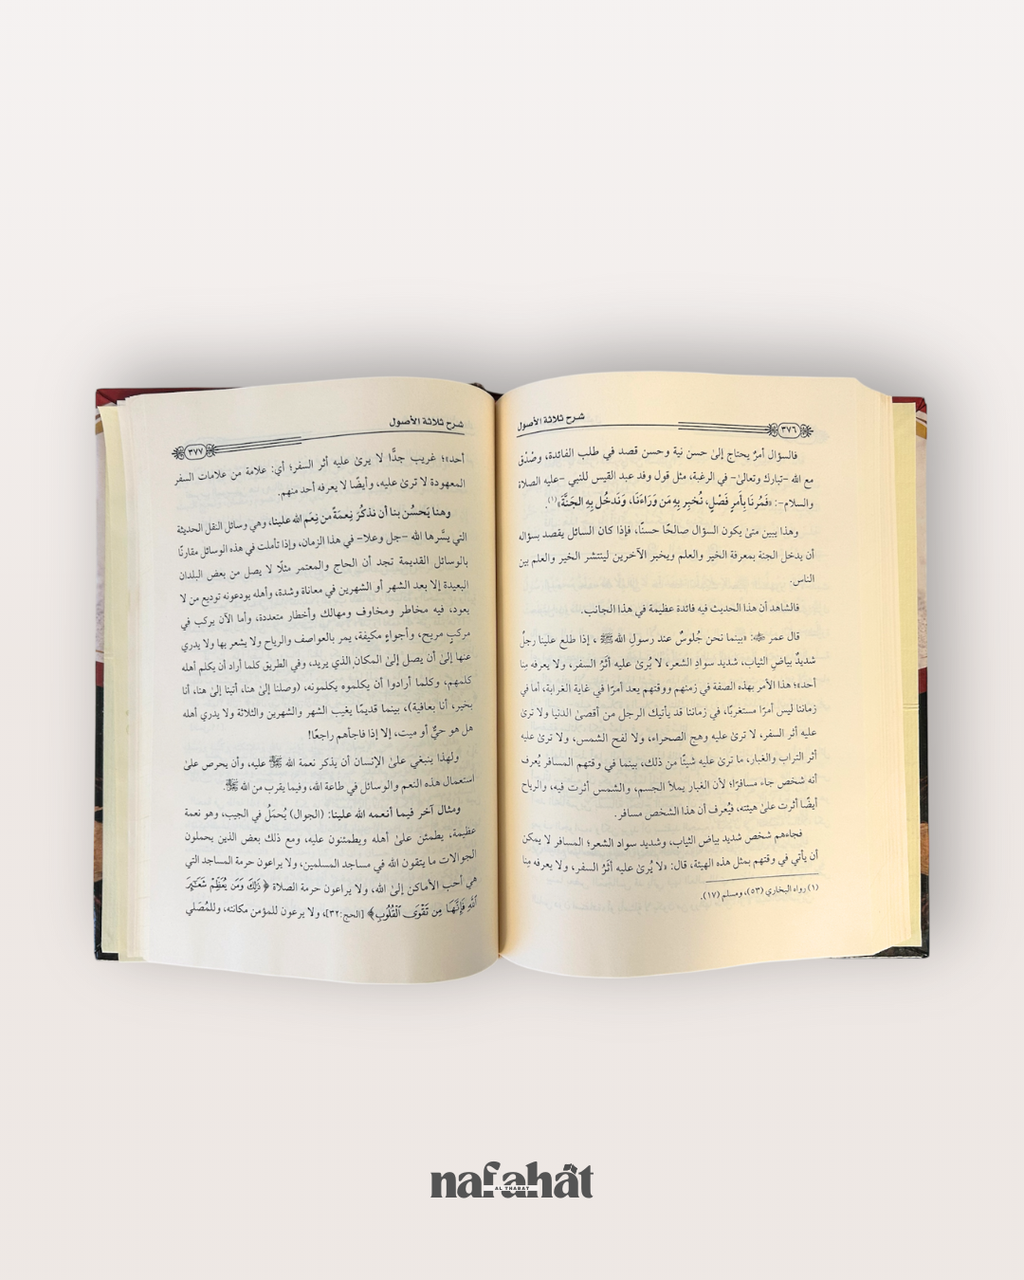 شرح ثلاثة الأصول
٣٧٦
فالسؤال أمرٌ يحتاج إلىٰ حسن نية وحسن قصد في طلب الفائدة، وصُدْق
مع الله -تبارك وتعالىٰ- في الرغبة، مثل قول وفد عبد القيس للنبي -عليه الصلاة
والسلام-: «فَمُرْنَا بِأَمرٍ فَصْلٍ، نُخبِر بِهِ مَن وَرَاءَنَا، وَنَدخُل بِهِ الجَنَّةَ»(١).
وهذا يبين متىٰ يكون السؤال صالحًا حسنًا، فإذا كان السائل يقصد بسؤاله
أن يدخل الجنة بمعرفة الخير والعلم ويخبر الآخرين لينتشر الخير والعلم بين
الناس.
فالشاهد أن هذا الحديث فيه فائدة عظيمة في هذا الجانب.
قال عمر ﵁: «بينما نحن جُلوسٌ عند رسولِ الله ﷺ ، إذا طلع علينا رجلٌ
شديدُ بياضِ الثياب، شديد سوادِ الشعر، لا يُرىٰ عليه أثَرُ السفر، ولا يعرفه مِنا
أحد»؛ هذا الأمر بهذه الصفة في زمنهم ووقتهم يعد أمرًا في غاية الغرابة، أما في
زماننا ليس أمرًا مستغربًا، في زماننا قد يأتيك الرجل من أقصىٰ الدنيا ولا ترىٰ
عليه أثر السفر، لا ترىٰ عليه وهج الصحراء، ولا لفح الشمس، ولا ترىٰ عليه
أثر التراب والغبار، ما ترىٰ عليه شيئًا من ذلك، بينما في وقتهم المسافر يُعرف
أنه شخص جاء مسافرًا؛ لأن الغبار يملأ الجسم، والشمس أثرت فيه، والرياح
أيضًا أثرت علىٰ هيئته، فيُعرف أن هذا الشخص مسافر.
فجاءهم شخص شديد بياض الثياب، وشديد سواد الشعر؛ المسافر لا يمكن
أن يأتي في وقتهم بمثل هذه الهيئة، قال: «لا يُرىٰ عليه أثرُ السفر، ولا يعرفه مِنا
(١) رواه البخاري (٥٣)، ومسلم (١٧).
شرح ثلاثة الأصول
٣٧٧
أحد»؛ غريب جدًّا لا يرىٰ عليه أثر السفر؛ أي: علامة من علامات السفر
المعهودة لا ترىٰ عليه، وأيضًا لا يعرفه أحد منهم.
وهنا يَحسُن بنا أن نذكُرَ نِعمَةً من نِعَم الله علينا، وهي وسائل النقل الحديثة
التي يسَّرها الله -جل وعلا- في هذا الزمان، وإذا تأملت في هذه الوسائل مقارنًا
بالوسائل القديمة تجد أن الحاج والمعتمر مثلًا لا يصل من بعض البلدان
البعيدة إلا بعد الشهر أو الشهرين في معاناة وشدة، وأهله يودعونه توديع من لا
يعود، فيه مخاطر ومخاوف ومهالك وأخطار متعددة، وأما الآن يركب في
مركبٍ مريح، وأجواءٍ مكيفة، يمر بالعواصف والرياح ولا يشعر بها ولا يدري
عنها إلىٰ أن يصل إلىٰ المكان الذي يريد، وفي الطريق كلما أراد أن يكلم أهله
كلمهم، وكلما أرادوا أن يكلموه يكلمونه، (وصلنا إلىٰ هنا، أتينا إلىٰ هنا، أنا
بخير، أنا بعافية)، بينما قديمًا يغيب الشهر والشهرين والثلاثة ولا يدري أهله
هل هو حيٌّ أو ميت، إلا إذا فاجأهم راجعًا!
ولهذا ينبغي علىٰ الإنسان أن يذكر نعمة الله ﷻ عليه، وأن يحرص علىٰ
استعمال هذه النعم والوسائل في طاعة الله، وفيما يقرب من الله ﷻ.
ومثال آخر فيما أنعمه الله علينا: (الجوال) يُحمَلُ في الجيب، وهو نعمة
عظيمة، يطمئن علىٰ أهله ويطمئنون عليه، ومع ذلك بعض الذين يحملون
الجوالات ما يتقون الله في مساجد المسلمين، ولا يراعون حرمة المساجد التي
هي أحب الأماكن إلىٰ الله، ولا يراعون حرمة الصلاة ﴿ذَٰلِكَ وَمَن يُعَظِّمْ شَعَٰٓئِرَ
ٱللَّهِ فَإِنَّهَا مِن تَقْوَى ٱلْقُلُوبِ﴾ [الحج:٣٢]، ولا يرعون للمؤمن مكانته، وللمُصَلي
nafahat
AL THABAT